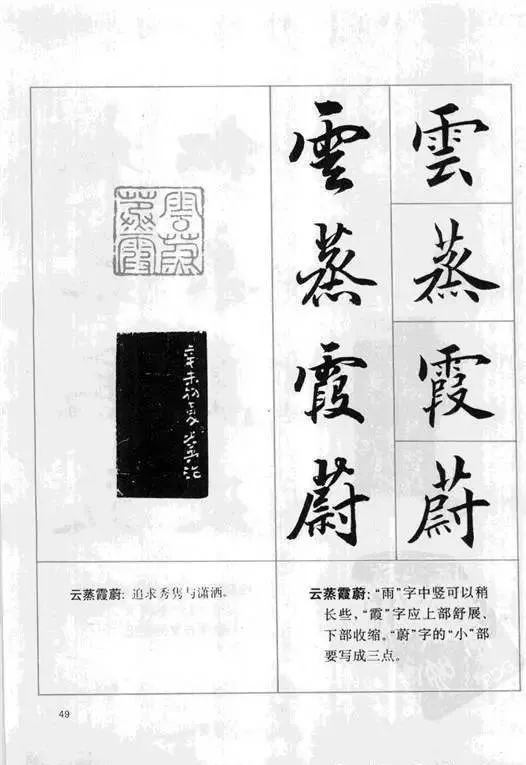 雲
蒸
霞
蔚
雲
蒸
霞
蔚
雲蒸
霞蔚
辛未初夏
云蒸霞蔚：追求秀隽与潇洒。
云蒸霞蔚：“雨”字中竖可以稍
长些，“霞”字应上部舒展、
下部收缩。“蔚”字的“小”部
要写成三点。
49